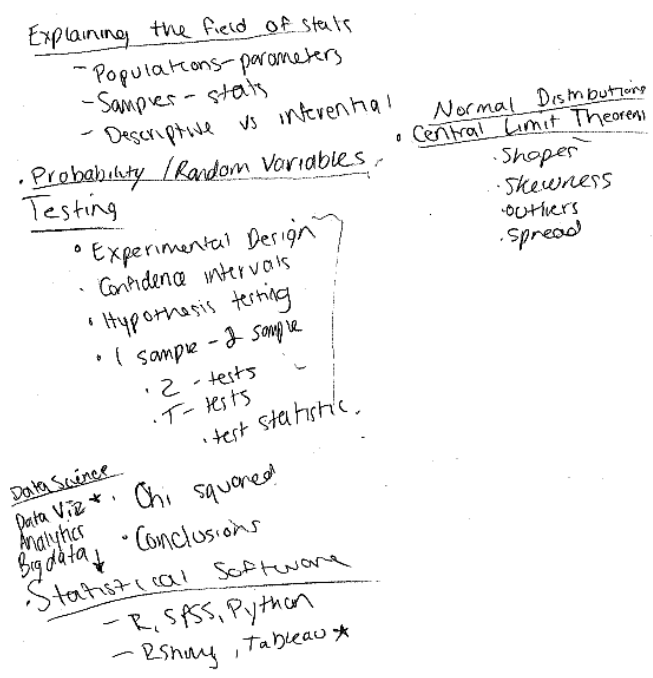 Explaining the field of stats
- Populations - parameters
- Samples - stats
- Descriptive vs inferential
Normal Distributions
• Central Limit Theorem
• Shapes
• Skewness
• outliers
• spread
• Probability / Random Variables
Testing
• Experimental Design
• Confidence intervals
• Hypothesis testing
• 1 sample - 2 sample
• Z - tests
• T - tests
• test statistic.
Data Science
Data Viz *
Analytics
Big data ↓
• Chi squared
• Conclusions
• Statistical Software
- R, SPSS, Python
- RShiny, Tableau *